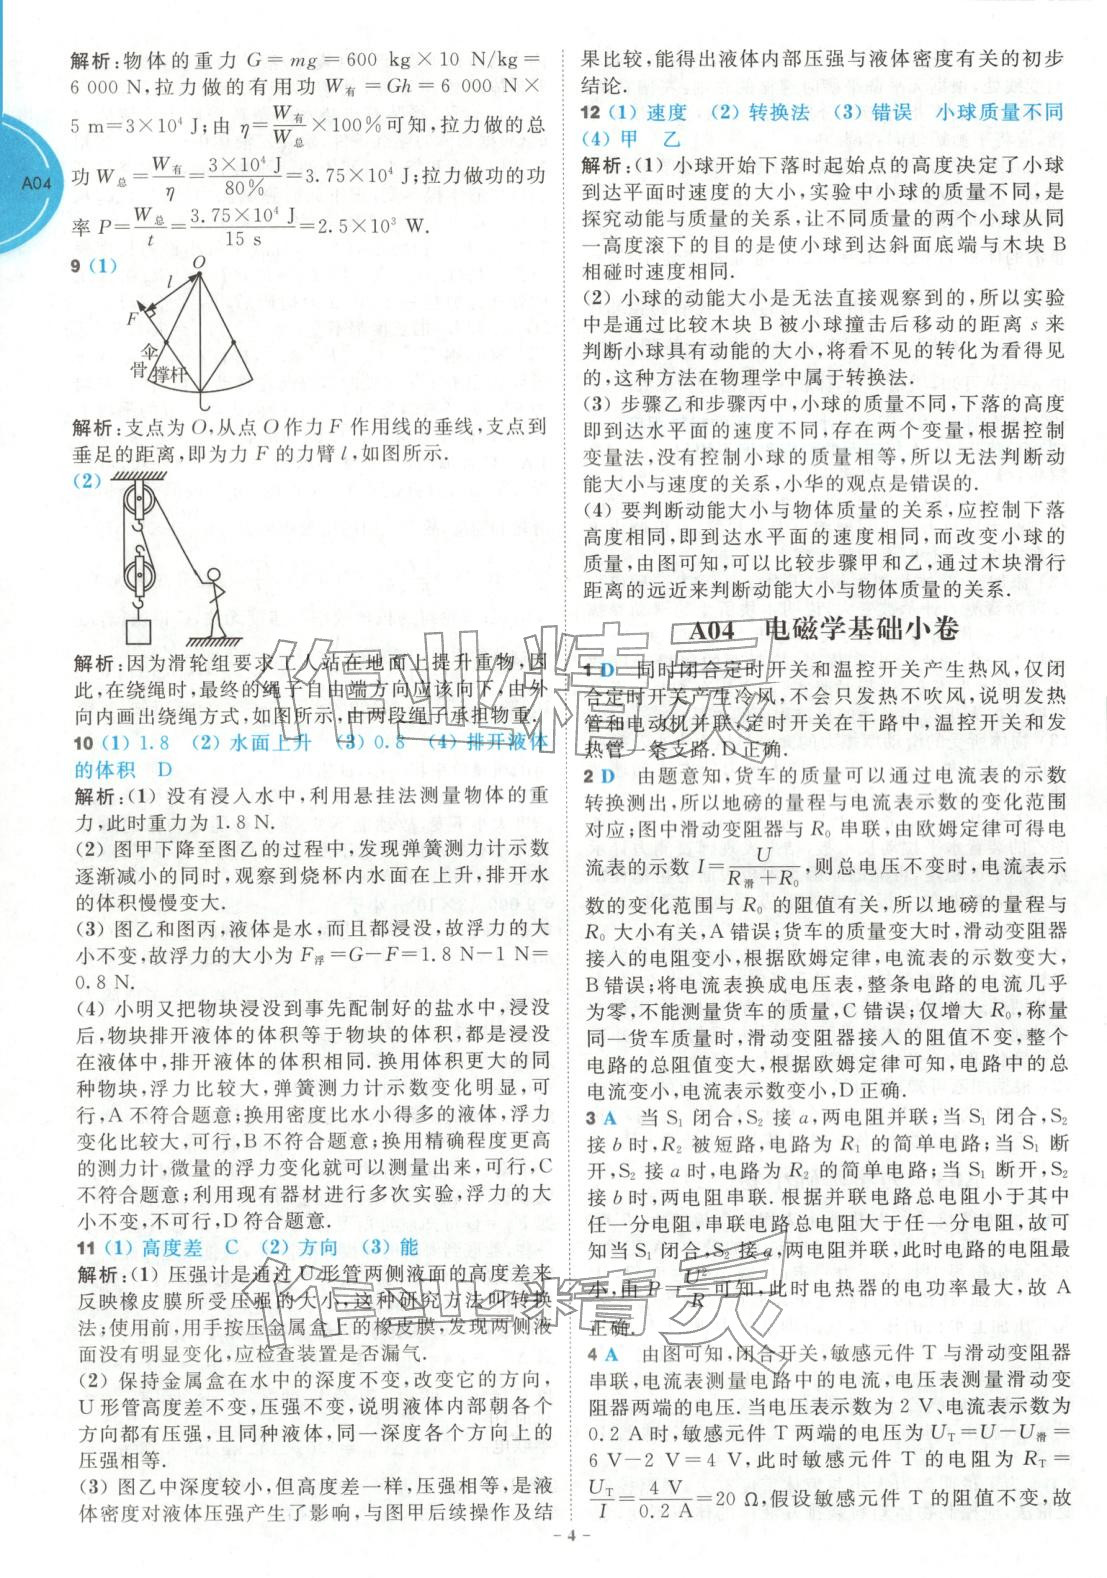 A04
解析:物体的重力 G=mg=600 kg×10 N/kg=
6 000 N,拉力做的有用功 W有=Gh=6 000 N×
5 m=3×10⁴ J;由 η=W有/W总×100%可知,拉力做的总
功 W总=W有/η=3×10⁴ J/80%=3.75×10⁴ J;拉力做功的功
率 P=W总/t=3.75×10⁴ J/15 s=2.5×10³ W.
9 (1)
O
l
F
伞
骨
撑杆
解析:支点为 O,从点 O 作力 F 作用线的垂线,支点到
垂足的距离,即为力 F 的力臂 l,如图所示.
(2)
解析:因为滑轮组要求工人站在地面上提升重物,因
此,在绕绳时,最终的绳子自由端方向应该向下,由外
向内画出绕绳方式,如图所示,由两段绳子承担物重.
10 (1) 1.8 (2) 水面上升 (3) 0.8 (4) 排开液体
的体积 D
解析:(1) 没有浸入水中,利用悬挂法测量物体的重
力,此时重力为 1.8 N.
(2) 图甲下降至图乙的过程中,发现弹簧测力计示数
逐渐减小的同时,观察到烧杯内水面在上升,排开水
的体积慢慢变大.
(3) 图乙和图丙,液体是水,而且都浸没,故浮力的大
小不变,故浮力的大小为 F浮=G-F=1.8 N-1 N=
0.8 N.
(4) 小明又把物块浸没到事先配制好的盐水中,浸没
后,物块排开液体的体积等于物块的体积,都是浸没
在液体中,排开液体的体积相同.换用体积更大的同
种物块,浮力比较大,弹簧测力计示数变化明显,可
行,A 不符合题意;换用密度比水小得多的液体,浮力
变化比较大,可行,B 不符合题意;换用精确程度更高
的测力计,微量的浮力变化就可以测量出来,可行,C
不符合题意;利用现有器材进行多次实验,浮力的大
小不变,不可行,D 符合题意.
11 (1) 高度差 C (2) 方向 (3) 能
解析:(1) 压强计是通过 U 形管两侧液面的高度差来
反映橡皮膜所受压强的大小,这种研究方法叫转换
法;使用前,用手按压金属盒上的橡皮膜,发现两侧液
面没有明显变化,应检查装置是否漏气.
(2) 保持金属盒在水中的深度不变,改变它的方向,
U 形管高度差不变,压强不变,说明液体内部朝各个
方向都有压强,且同种液体,同一深度各个方向上的
压强相等.
(3) 图乙中深度较小,但高度差一样,压强相等,是液
体密度对液体压强产生了影响,与图甲后续操作及结
果比较,能得出液体内部压强与液体密度有关的初步
结论.
12 (1) 速度 (2) 转换法 (3) 错误 小球质量不同
(4) 甲 乙
解析:(1) 小球开始下落时起始点的高度决定了小球
到达平面时速度的大小,实验中小球的质量不同,是
探究动能与质量的关系,让不同质量的两个小球从同
一高度滚下的目的是使小球到达斜面底端与木块 B
相碰时速度相同.
(2) 小球的动能大小是无法直接观察到的,所以实验
中是通过比较木块 B 被小球撞击后移动的距离 s 来
判断小球具有动能的大小,将看不见的转化为看得见
的,这种方法在物理学中属于转换法.
(3) 步骤乙和步骤丙中,小球的质量不同,下落的高度
即到达水平面的速度不同,存在两个变量,根据控制
变量法,没有控制小球的质量相等,所以无法判断动
能大小与速度的关系,小华的观点是错误的.
(4) 要判断动能大小与物体质量的关系,应控制下落
高度相同,即到达水平面的速度相同,而改变小球的
质量,由图可知,可以比较步骤甲和乙,通过木块滑行
距离的远近来判断动能大小与物体质量的关系.
A04 电磁学基础小卷
1 D 同时闭合定时开关和温控开关产生热风,仅闭
合定时开关产生冷风,不会只发热不吹风,说明发热
管和电动机并联,定时开关在干路中,温控开关和发
热管一条支路.D 正确.
2 D 由题意知,货车的质量可以通过电流表的示数
转换测出,所以地磅的量程与电流表示数的变化范围
对应;图中滑动变阻器与 R₀ 串联,由欧姆定律可得电
流表的示数 I=U/(R滑+R₀),则总电压不变时,电流表示
数的变化范围与 R₀ 的阻值有关,所以地磅的量程与
R₀ 大小有关,A 错误;货车的质量变大时,滑动变阻器
接入的电阻变小,根据欧姆定律,电流表的示数变大,
B 错误;将电流表换成电压表,整条电路的电流几乎
为零,不能测量货车的质量,C 错误;仅增大 R₀,称量
同一货车质量时,滑动变阻器接入的阻值不变,整个
电路的总阻值变大,根据欧姆定律可知,电路中的总
电流变小,电流表示数变小,D 正确.
3 A 当 S₁ 闭合,S₂ 接 a,两电阻并联;当 S₁ 闭合,S₂
接 b 时,R₂ 被短路,电路为 R₁ 的简单电路;当 S₁ 断
开,S₂ 接 a 时,电路为 R₂ 的简单电路;当 S₁ 断开,S₂
接 b 时,两电阻串联.根据并联电路总电阻小于其中
任一分电阻,串联电路总电阻大于任一分电阻,故可
知当 S₁ 闭合,S₂ 接 a,两电阻并联,此时电路的电阻最
小,由 P=U²/R 可知,此时电热器的电功率最大,故 A
正确.
4 A 由图可知,闭合开关,敏感元件 T 与滑动变阻器
串联,电流表测量电路中的电流,电压表测量滑动变
阻器两端的电压.当电压表示数为 2 V、电流表示数为
0.2 A时,敏感元件 T 两端的电压为 U_T=U-U滑=
6 V-2 V=4 V,此时敏感元件 T 的电阻为 R_T=
U_T/I=4 V/0.2 A=20 Ω,假设敏感元件 T 的阻值不变,故
- 4 -
作业精灵
作业精灵